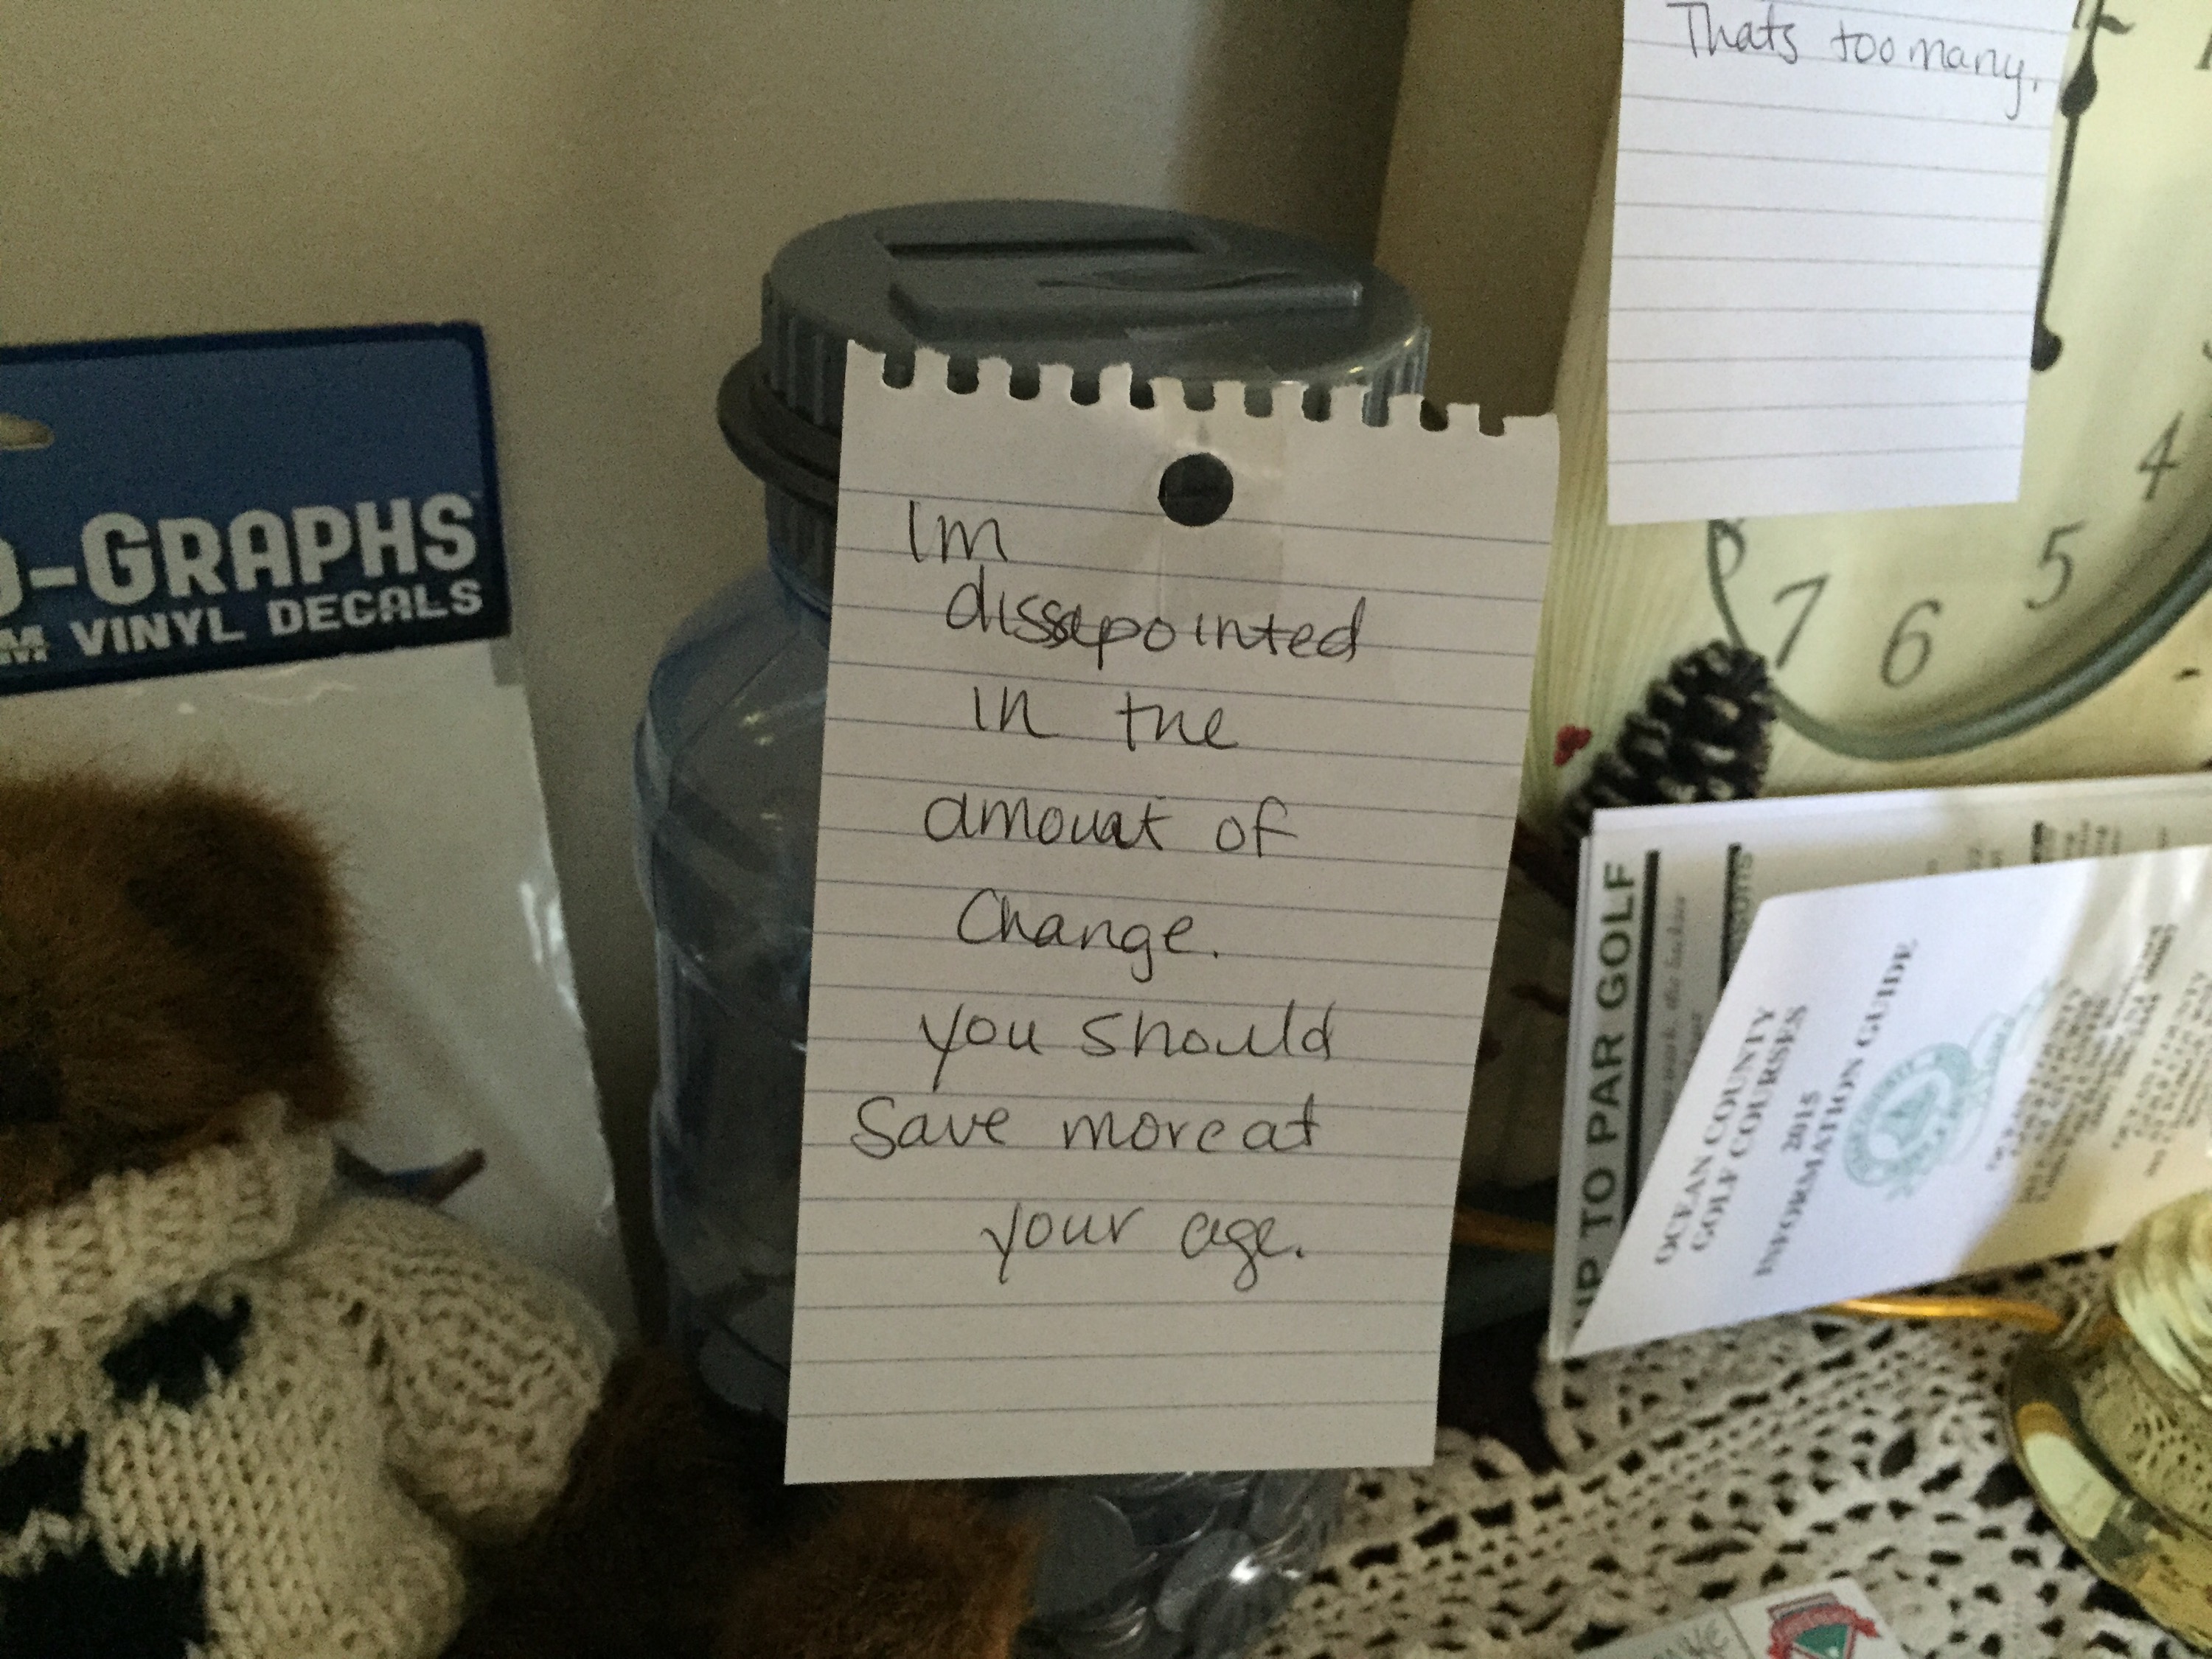 Thats too many.
Im
dissapointed
in the
amount of
Change.
you should
Save more at
your age.
-GRAPHS
VINYL DECALS
4
5
6
7
8
UP TO PAR GOLF
OCEAN COUNTY
GOLF COURSES
2015
INFORMATION GUIDE